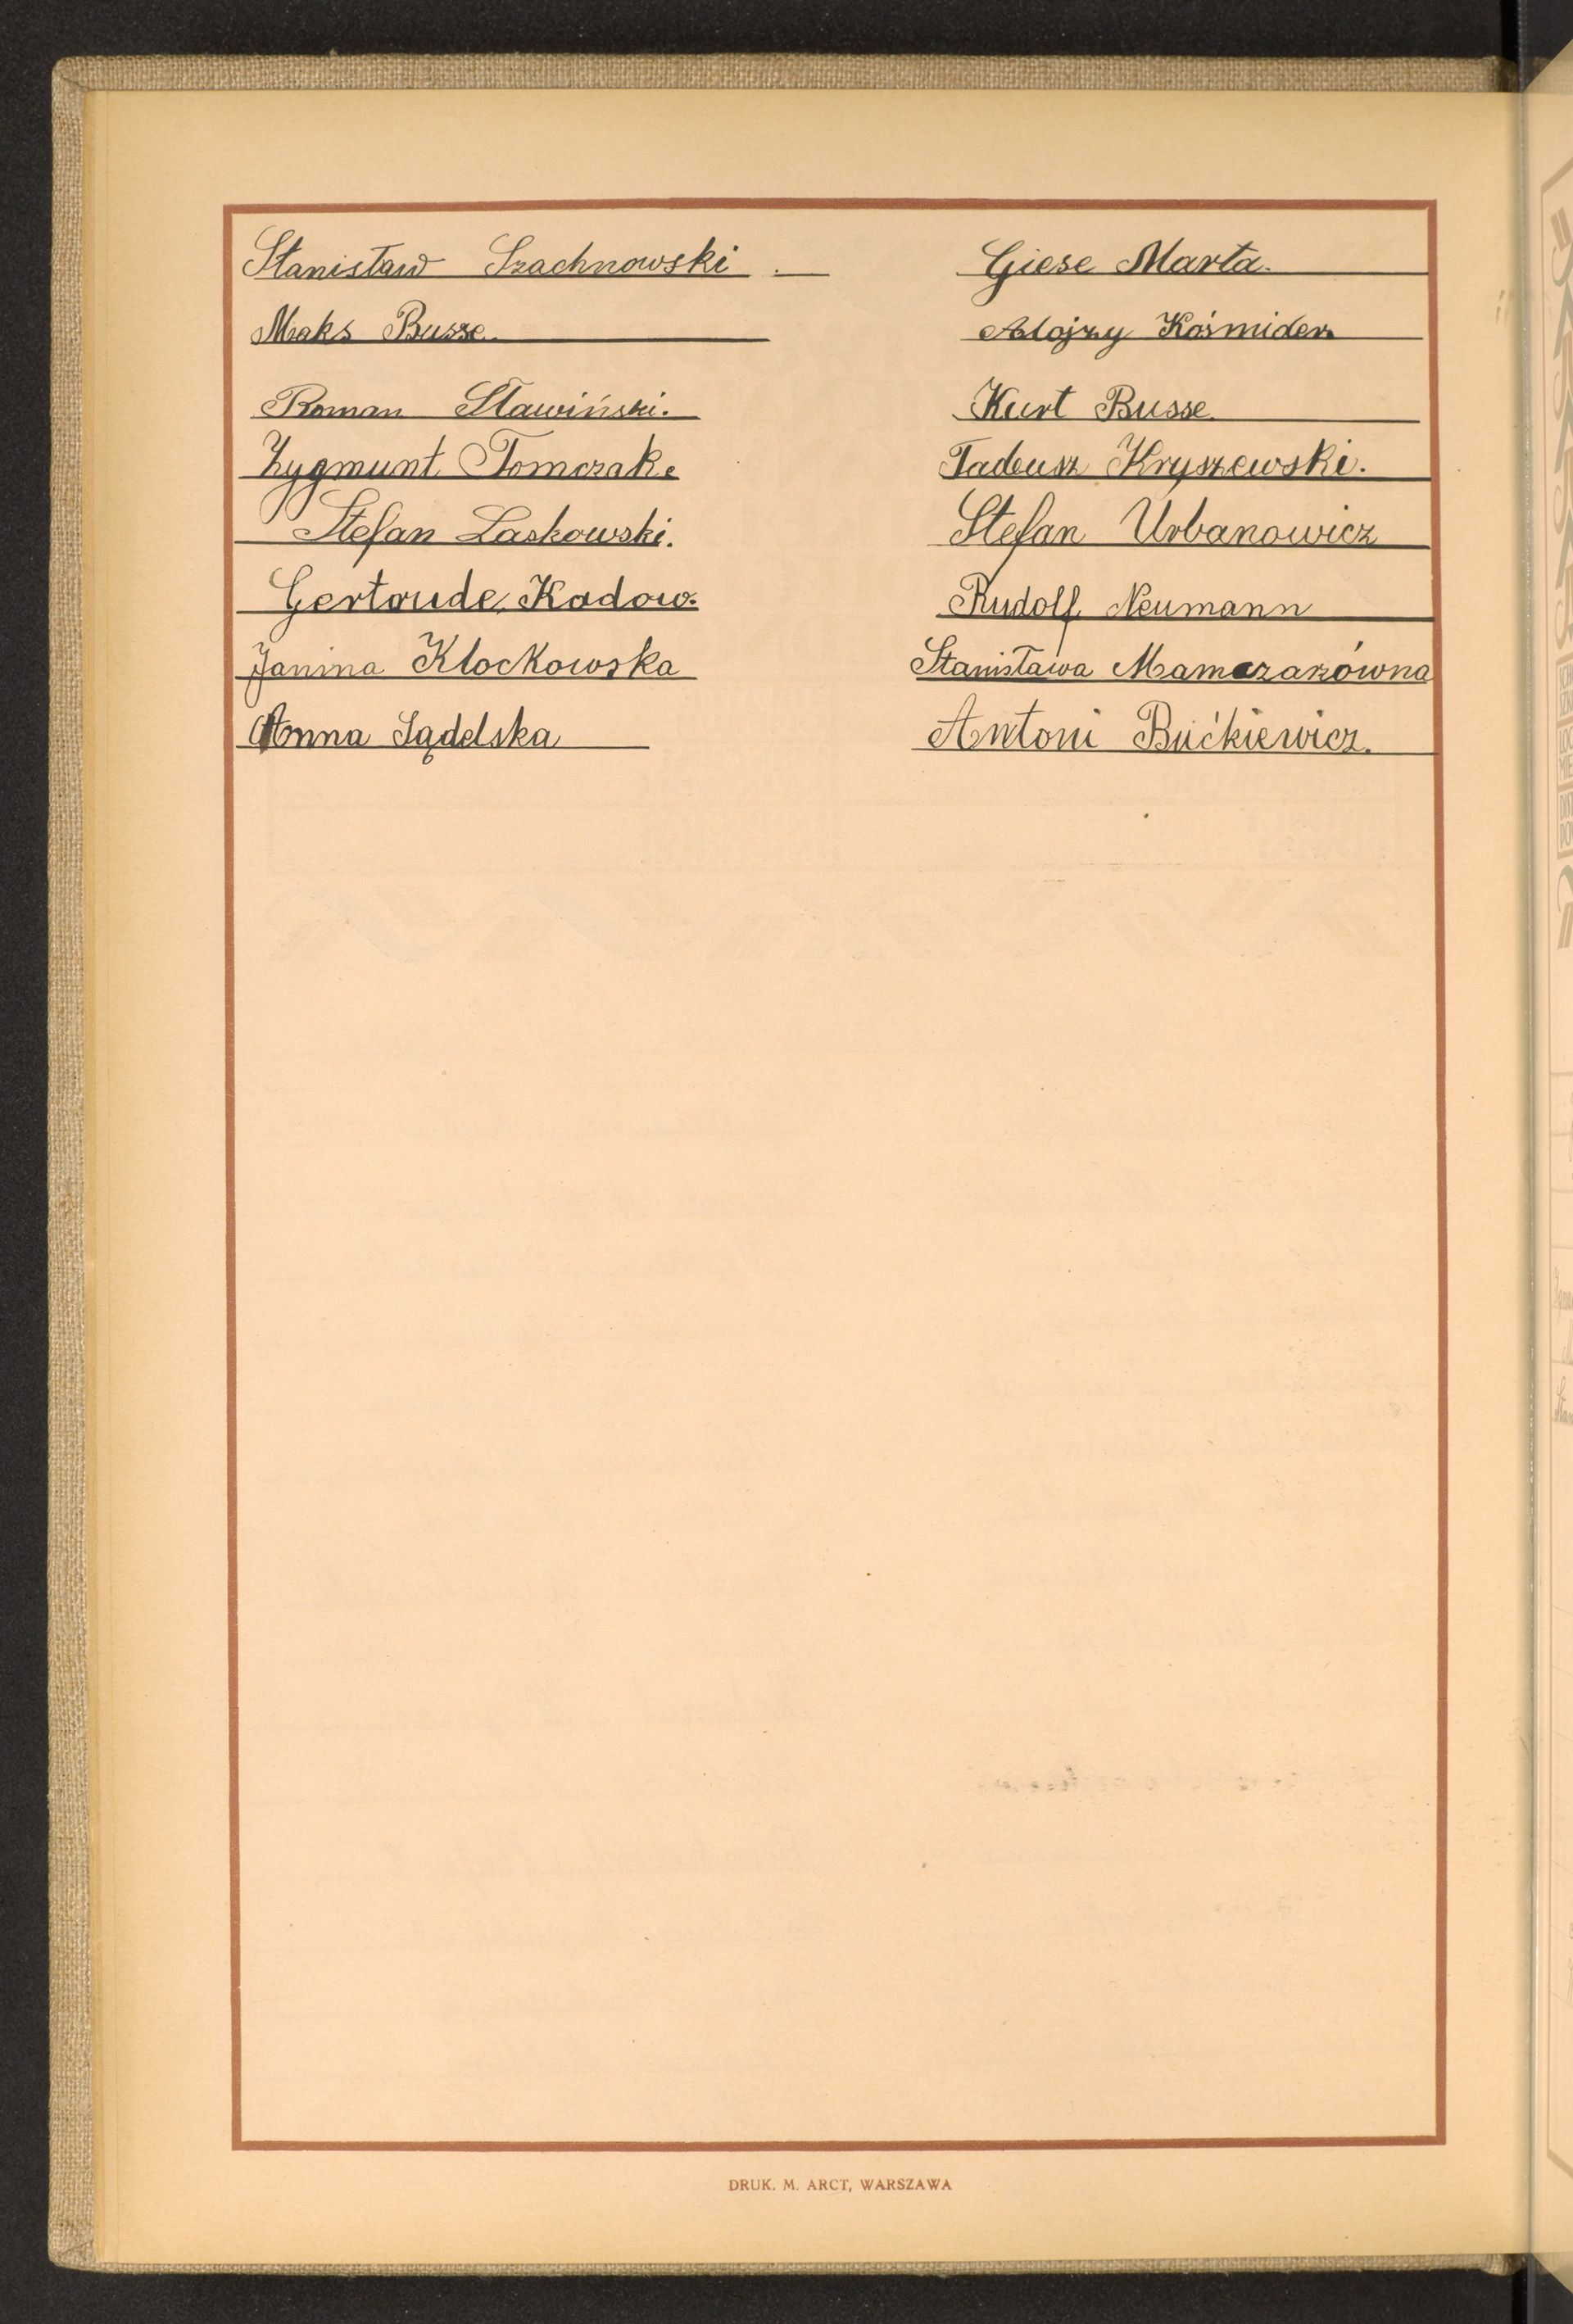 Stanisław Szachnowski.
Maks Busse.
Roman Sławiński.
Zygmunt Tomczak.
Stefan Laskowski.
Gertrude Kadow.
Janina Klockowska
Anna Sądelska
Giese Marta.
Alojzy Kośmider
Kurt Busse.
Tadeusz Kryszewski.
Stefan Urbanowicz
Rudolf Neumann
Stanisława Mamczarówna
Antoni Bućkiewicz.
DRUK. M. ARCT, WARSZAWA